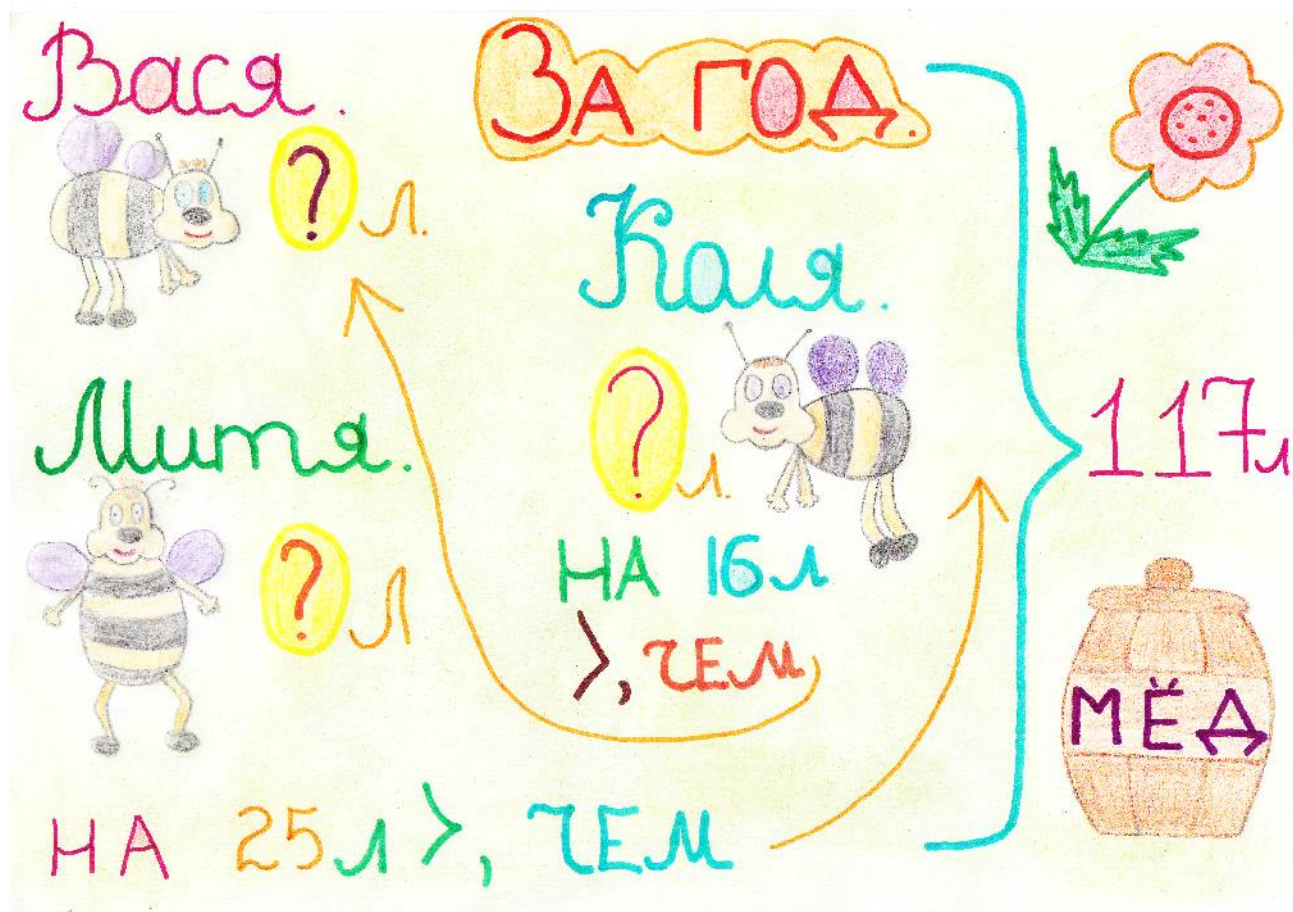 Вася.
? л.
За год.
Коля.
? л.
на 16 л
>, чем
Митя.
? л
на 25 л >, чем
117 л
МЁД